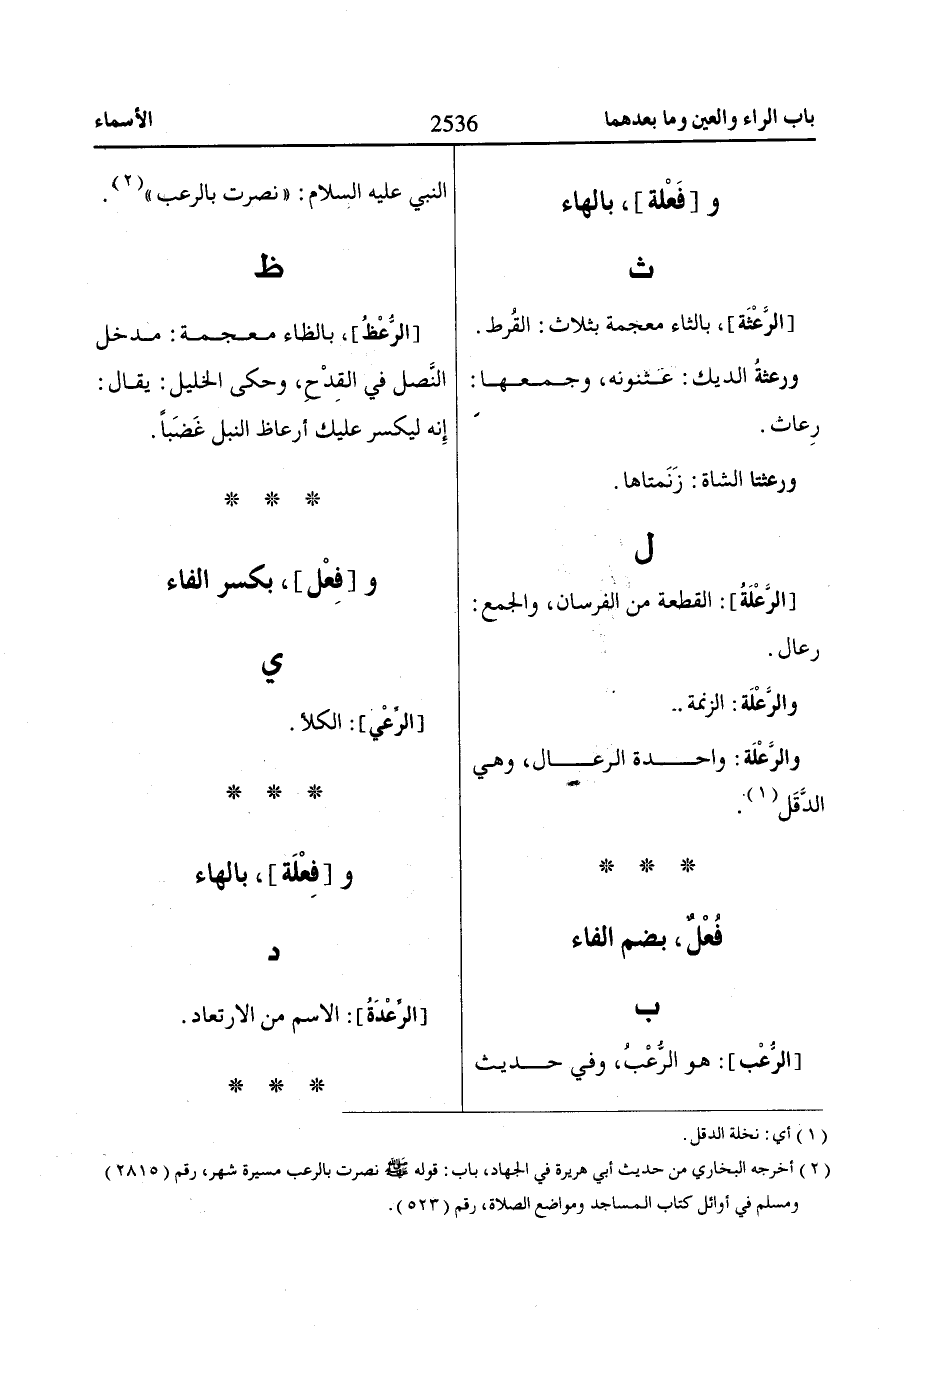 باب الراء والعين وما بعدهما
2536
الأسماء
و [فَعْلة]، بالهاء
ث
[الرَّعْثَة]، بالثاء معجمة بثلاث: القُرط.
ورعثةُ الديك: عَثنونه، وجمعها:
رِعاث.
ورعثتا الشاة: زَنَمتاها.
ل
[الرَّعْلَةُ]: القطعة من الفرسان، والجمع:
رعال.
والرَّعْلَة: الزنمة..
والرَّعْلَة: واحدة الرعال، وهي
الدَّقَل(١).
* * *
فُعْلٌ، بضم الفاء
ب
[الرُّعْب]: هو الرُّعْبُ، وفي حديث
النبي عليه السلام: «نصرت بالرعب»(٢).
ظ
[الرُّعْظُ]، بالظاء معجمة: مدخل
النَّصل في القِدْحِ، وحكى الخليل: يقال:
إِنه ليكسر عليك أرعاظ النبل غَضَباً.
* * *
و [فِعْل]، بكسر الفاء
ي
[الرِّعْي]: الكلأ.
* * *
و [فِعْلَة]، بالهاء
د
[الرِّعْدَةُ]: الاسم من الارتعاد.
* * *
(١) أي: نخلة الدقل.
(٢) أخرجه البخاري من حديث أبي هريرة في الجهاد، باب: قوله ﷺ نصرت بالرعب مسيرة شهر، رقم (٢٨١٥)
ومسلم في أوائل كتاب المساجد ومواضع الصلاة، رقم (٥٢٣).